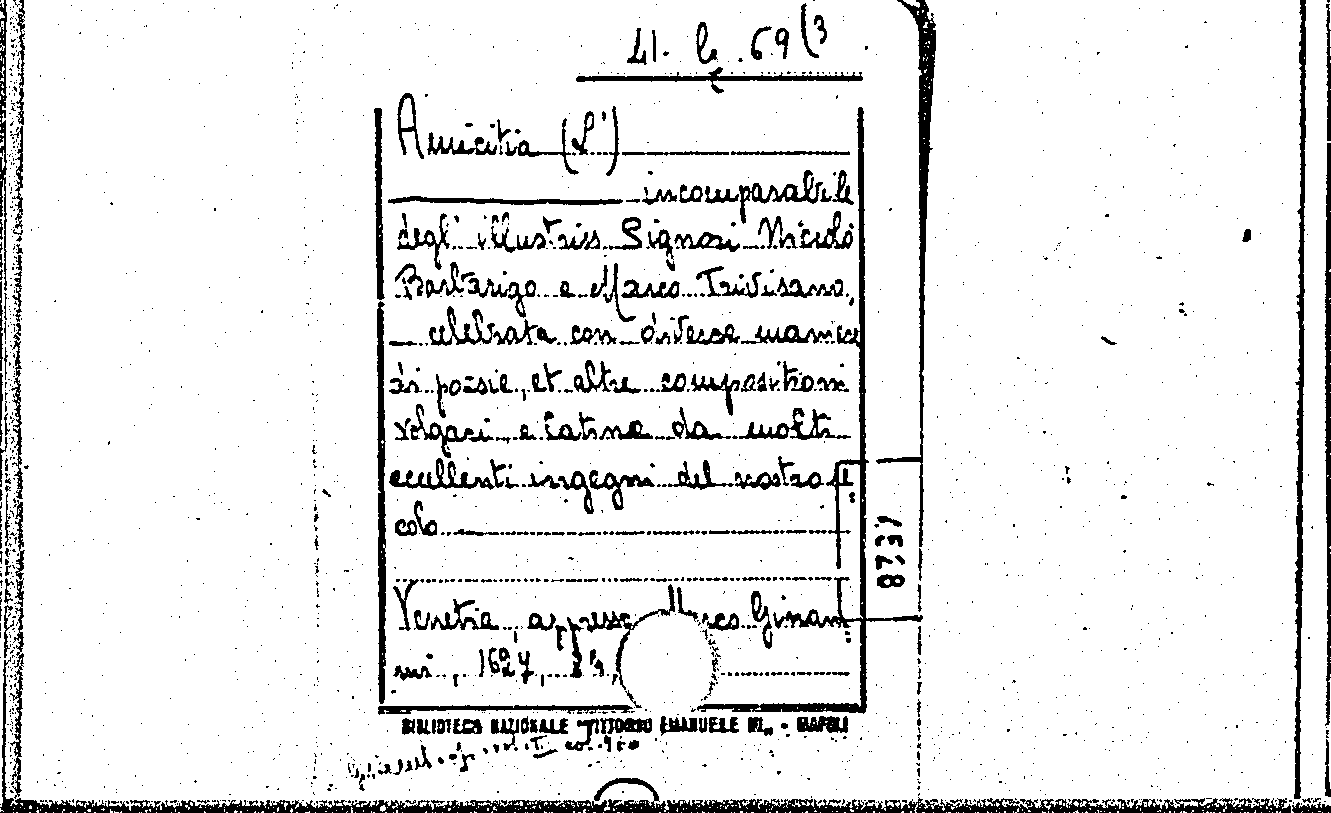 41. b. 69 (3
Amicitia (L')
incomparabile
degl' illustriss Signori Nicolò
Barbarigo e Marco Trivisano,
celebrata con diverse maniere
di poesie, et altre compositioni
volgari, e latine da molti
eccellenti ingegni del nostro se
colo
Venetia, appresso Marco Ginam
mi, 1627, 8º,
BIBLIOTECA NAZIONALE "VITTORIO EMANUELE III„ - NAPOLI